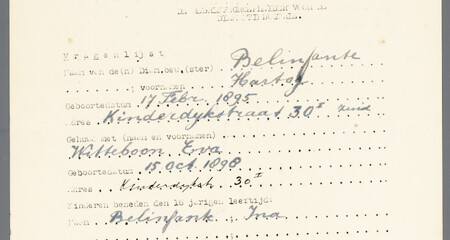 Vragenlijst
Naam van de(n) Diam.bew.(ster) Belinfante
voornamen Hartog
Geboortedatum 17 Febr. 1895
Adres Kinderdykstraat 30 I Zuid
Gehuwd met (naam en voornamen)
Witteboon Eva
Geboortedatum 15 Oct 1898
Adres Kinderdykstr. 30 I
Kinderen beneden den 16 jarigen leeftijd:
Naam Belinfante Ina